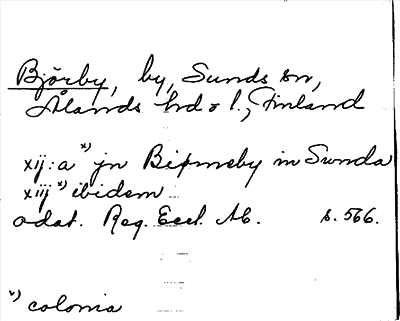 Björby, by, Sunds sn,
Ålands hd o l., Finland
xij:a ˣ⁾ jn Biprnsby in Sunda
xiij ˣ⁾ ibidem
odat. Reg. Eccl. Ab. s. 566.
ˣ⁾ colonia